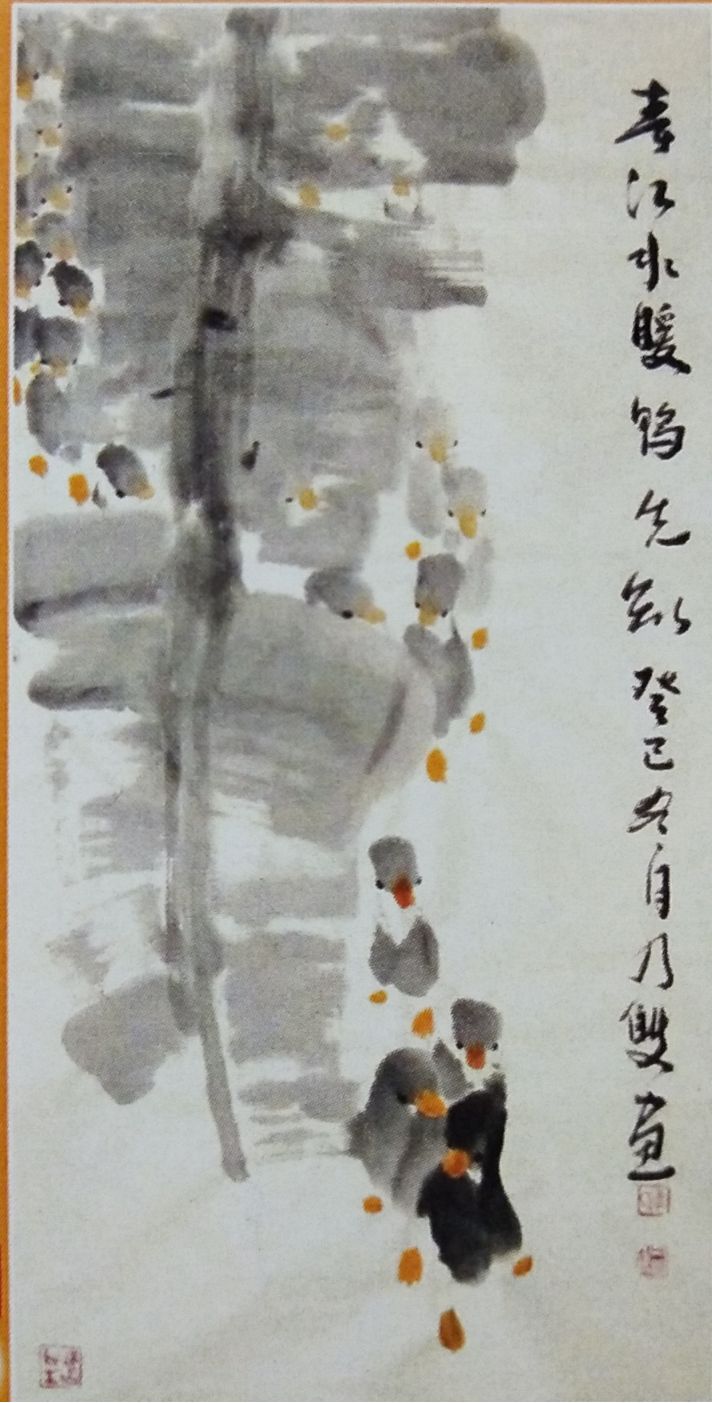 春江水暖鸭先知癸巳冬月乃雙画